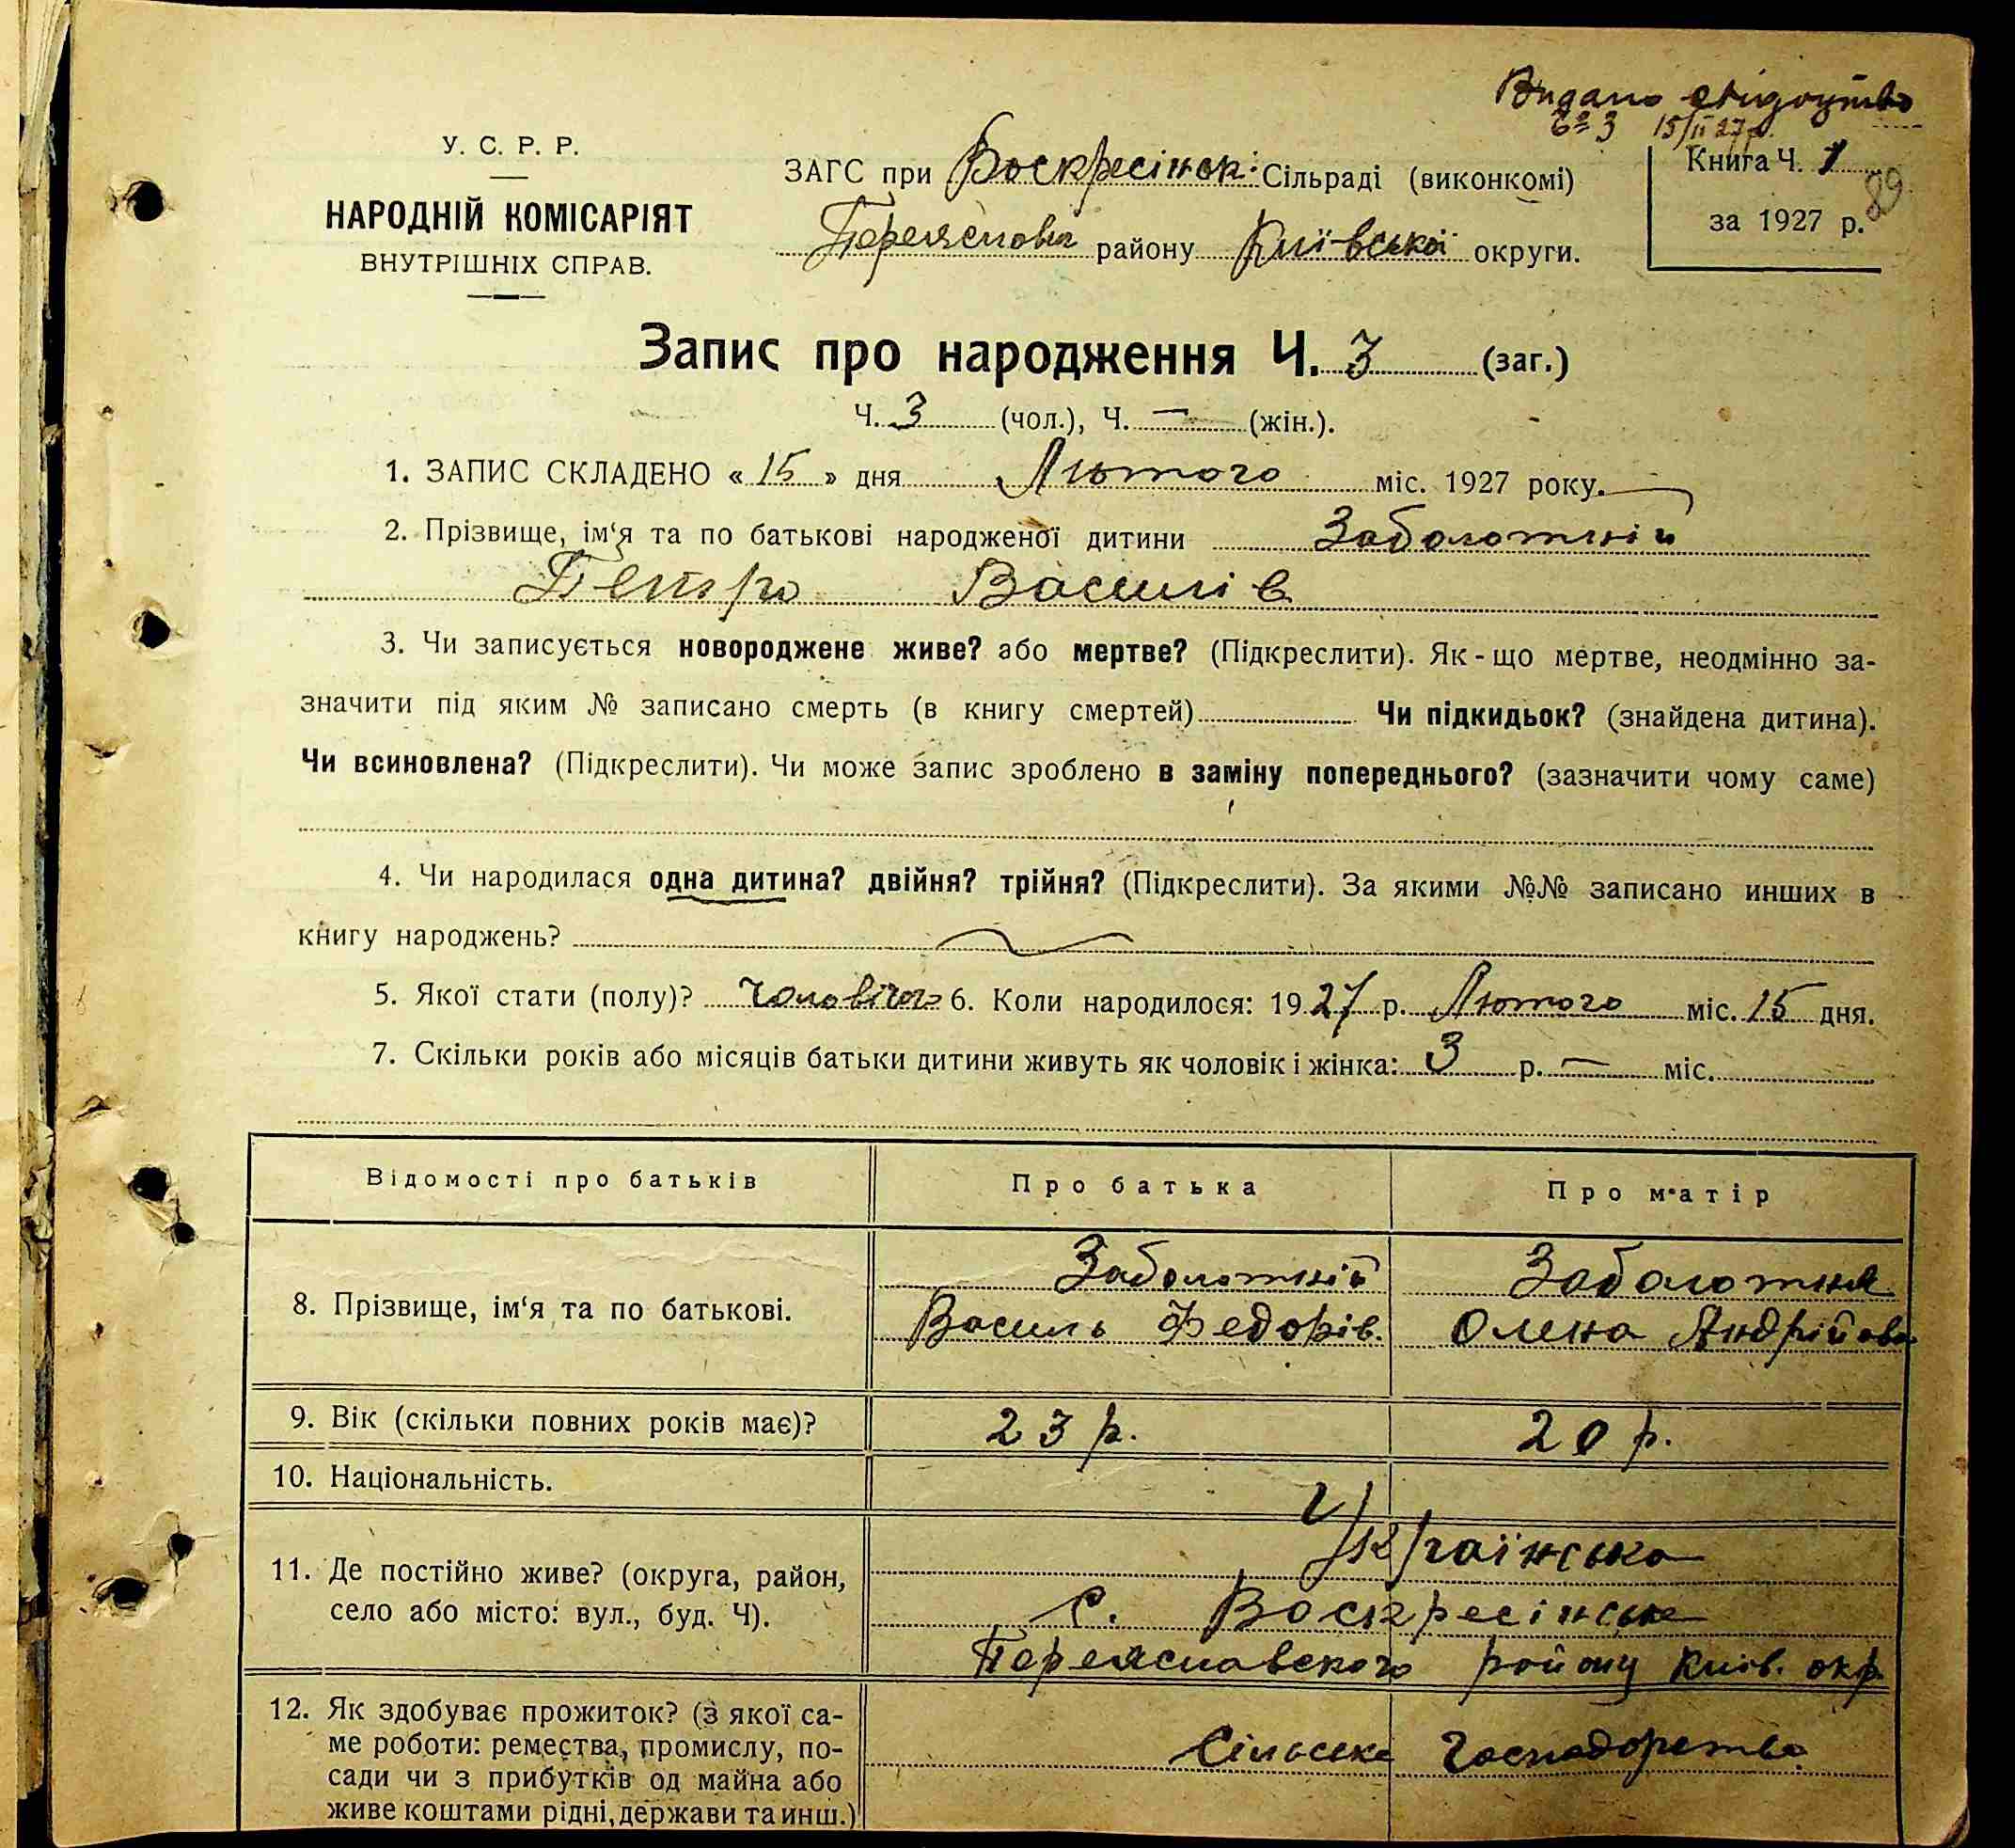 Видано свідоцтво
Ч 3 15/II 27 р.
У. С. Р. Р.
НАРОДНІЙ КОМІСАРІЯТ
ВНУТРІШНІХ СПРАВ.
ЗАГС при Воскресінск. Сільраді (виконкомі)
району Київської округи.
Книга Ч. 1
89
за 1927 р.
Запис про народження Ч. 3 (заг.)
Ч. 3 (чол.), Ч. — (жін.).
1. ЗАПИС СКЛАДЕНО « 15 » дня Лютого міс. 1927 року.
2. Прізвище, ім‘я та по батькові народженої дитини Заболотній
Петро Василів
3. Чи записується новороджене живе? або мертве? (Підкреслити). Як-що мертве, неодмінно за-
значити під яким № записано смерть (в книгу смертей) Чи підкидьок? (знайдена дитина).
Чи всиновлена? (Підкреслити). Чи може запис зроблено в заміну попереднього? (зазначити чому саме)
4. Чи народилася одна дитина? двійня? трійня? (Підкреслити). За якими №№ записано инших в
книгу народжень?
5. Якої стати (полу)? Чоловічого 6. Коли народилося: 1927 р. Лютого міс. 15 дня.
7. Скільки років або місяців батьки дитини живуть як чоловік і жінка: 3 р. — міс.
Відомості про батьків Про батька Про матір
8. Прізвище, ім‘я та по батькові.
Заболотній
Василь Федорів.
Заболотня
Олена Андрійова
9. Вік (скільки повних років має)? 23 р. 20 р.
10. Національність.
Українська
11. Де постійно живе? (округа, район,
село або місто: вул., буд. Ч).
с. Воскресінське
Переяславского району Київ. окр.
12. Як здобуває прожиток? (з якої са-
ме роботи: ремества, промислу, по-
сади чи з прибутків од майна або
живе коштами рідні, держави та инш.)
Сільське Господарство